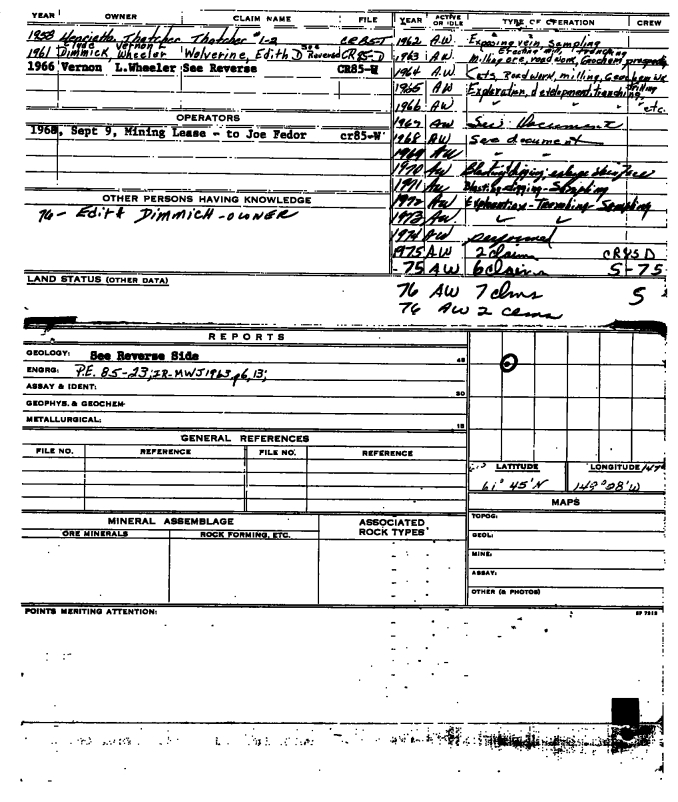 YEAR OWNER CLAIM NAME FILE
1958 Henrietta Thatcher Thatcher #1-2 CR85-T
1961 Clyde Dimmick, Vernon L Wheeler Wolverine, Edith D See Reverse CR85-D
1966 Vernon L.Wheeler See Reverse CR85-W
OPERATORS
1968, Sept 9, Mining Lease - to Joe Fedor cr85-W
OTHER PERSONS HAVING KNOWLEDGE
76 - Edith DIMMICH - OWNER
LAND STATUS (OTHER DATA)
YEAR ACTIVE OR IDLE TYPE OF OPERATION CREW
1962 A.W. Exposing vein, Sampling
1963 A.W. Erecting mill, trenching Milling ore, road work, Geochem prospecting
1964 A.W. Cuts, Road work, milling, Geochem wk
1965 AW Exploration, development, trenching, drilling
1966 AW " " " etc.
1967 AW See Document
1968 AW See document
1969 AW " "
1970 AW Blasting, digging,
1971 AW Blasting-digging-Sampling
1972 AW Trenching Sampling
1973 AW " "
1974 AW performed
1975 AW 2 claims CR85 D
- 75 AW 6 claims S-75
76 AW 7 clms S
76 AW 2 clms
REPORTS
GEOLOGY: See Reverse Side 45
ENGRG: P.E. 85-23; IR-MWJ 1963 p6,13;
ASSAY & IDENT: 30
GEOPHYS. & GEOCHEM-
METALLURGICAL: 15
GENERAL REFERENCES
FILE NO. REFERENCE FILE NO. REFERENCE
LATITUDE LONGITUDE
61° 45'N 149° 08'W
MAPS
TOPOG:
GEOL:
MINE:
ASSAY:
OTHER (& PHOTOS)
MINERAL ASSEMBLAGE
ORE MINERALS ROCK FORMING, ETC.
ASSOCIATED ROCK TYPES
POINTS MERITING ATTENTION: